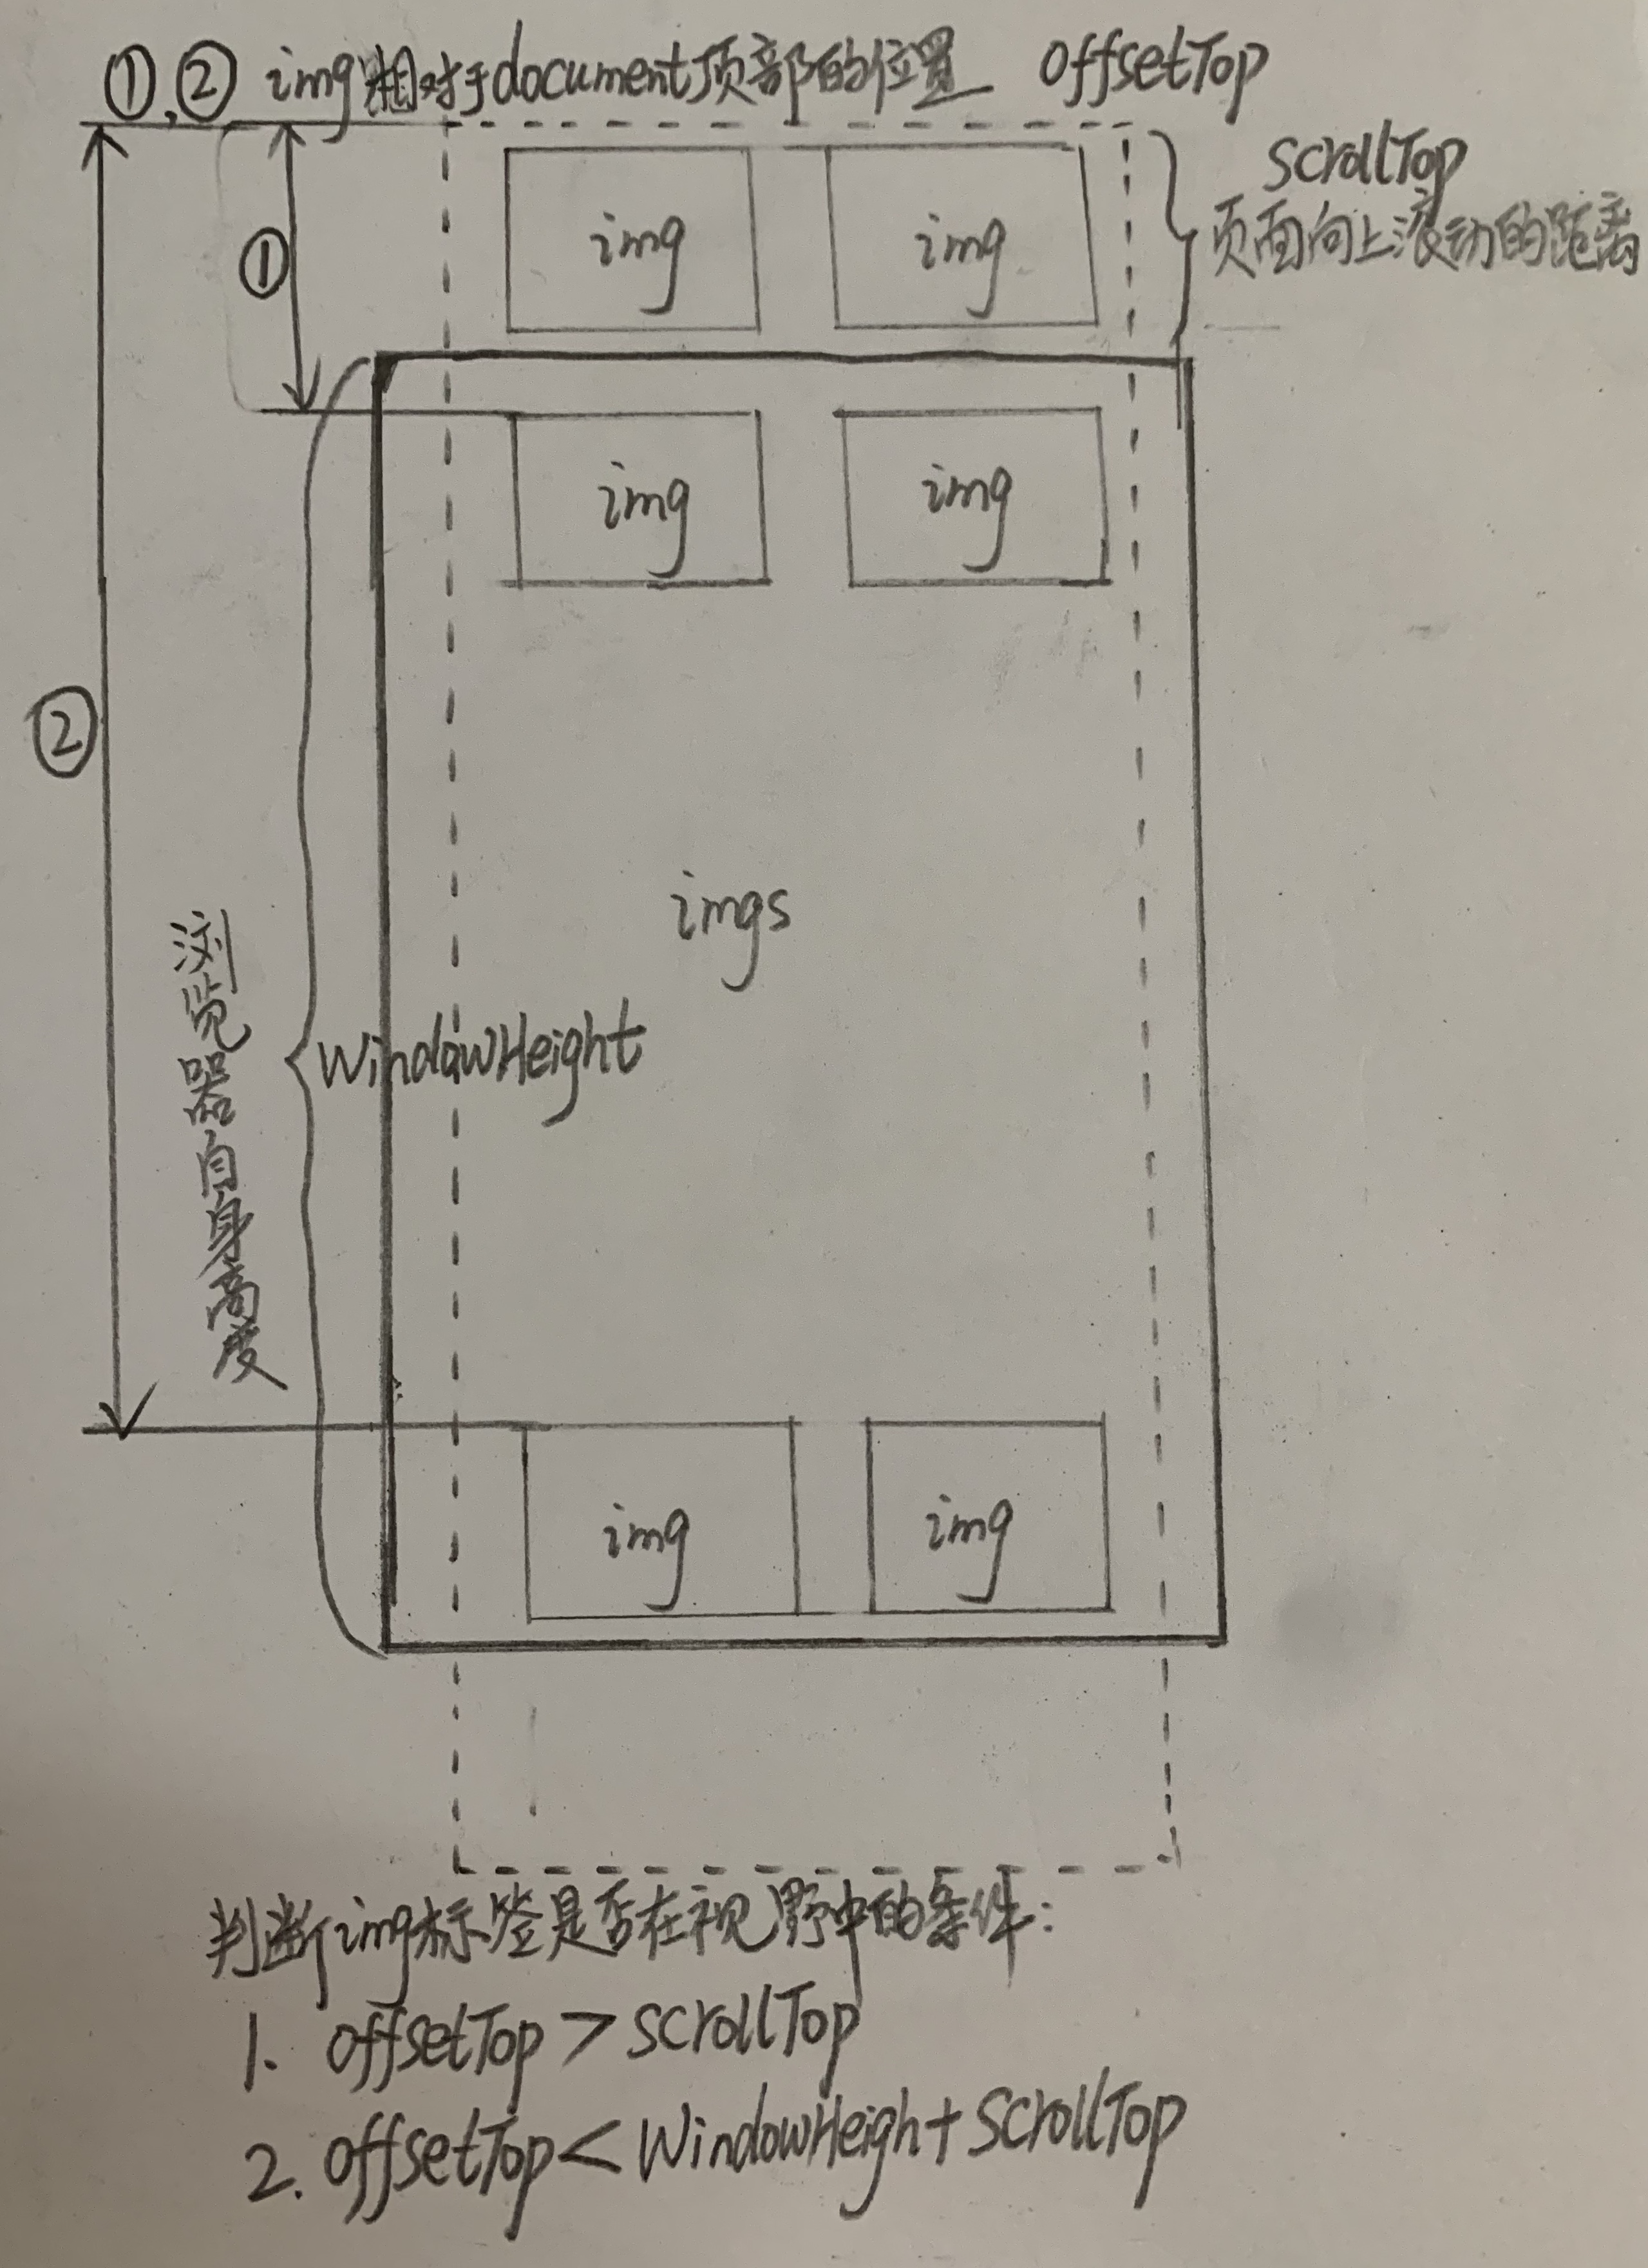 ①,② img相对于document顶部的位置 offsetTop
scrollTop
页面向上滚动的距离
①
img img
img img
②
imgs
浏览器自身高度
WindowHeight
img img
判断img标签是否在视野中的条件:
1. offsetTop > scrollTop
2. offsetTop < WindowHeigh+ScrollTop